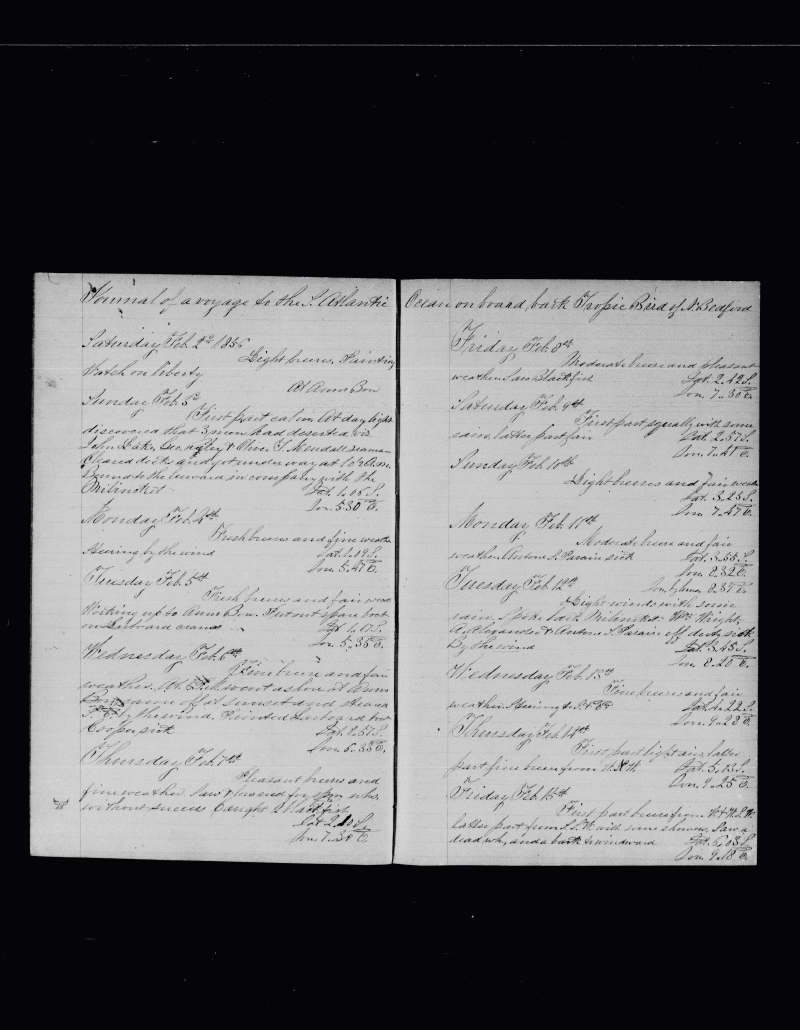 Journal of a voyage to the S. Atlantic
Saturday Feb. 2d 1856
Light breeze. Painting
Watch on liberty
At Anno Bon
Sunday Feb. 3d
First part calm. At day light
discovered that 3 men had deserted, viz.
John Baker, & Oliver T. Mendall seaman
Cleared decks and got under way at 10 A.m.
Bound to the leward in company with the
Lat. 1.06 S.
Lon. 5.30 E.
Monday Feb. 4th
Fresh breeze and fine weather
Steering by the wind Lat. 1.04 S.
Lon. 5.47 E.
Tuesday Feb. 5th
Fresh breeze and fair weather
Working up to Anno Bon. Put out spare boat
on Larboard cranes Lat. 1.17 S.
Lon. 5.35 E.
Wednesday Feb. 6th
Fine breeze and fair
weather. At went ashore at Anno
Bon came off at sunset and steared
by the wind. Painted Larboard bow
Cooper sick Lat. 1.57 S.
Lon. 5.35 E.
Thursday Feb. 7th
Pleasant breeze and
fine weather. Saw & lowered for whs.
without success Caught 2 Black fish
Lat. 2.10 S.
Lon. 7.30 E.
Ocean on board bark Tropic Bird of N. Bedford
Friday Feb. 8th
Moderate breeze and pleasant
weather. Saw Blackfish Lat. 2.42 S.
Lon. 7.30 E.
Saturday Feb. 9th
First part squally with some
rain, latter part fair Lat. 2.57 S.
Lon. 7.41 E.
Sunday Feb. 10th
Light breezes and fair weather
Lat. 3.23 S.
Lon. 7.47 E.
Monday Feb. 11th
Moderate breeze and fair
weather. Antone S. sick Lat. 3.55 S.
Lon. 8.32 E.
Tuesday Feb. 12th Lon. by lunar 8.37 E.
Light winds with some
rain, Spoke bark Wm. Wright,
& Antone S. off duty sick
By the wind Lat. 3.45 S.
Lon. 8.20 E.
Wednesday Feb. 13th
Fine breezes and fair
weather. Steering Lat. 4.22 S.
Lon. 9.23 E.
Thursday Feb. 14th
First part light airs, latter
part fine breeze from Lat. 5.13 S.
Lon. 9.25 E.
Friday Feb. 15th
First part breeze from W. & W.S.W.
latter part from S.W. with some showers. Saw a
dead wh, and a bark to windward Lat. 6.03 S.
Lon. 9.18 E.